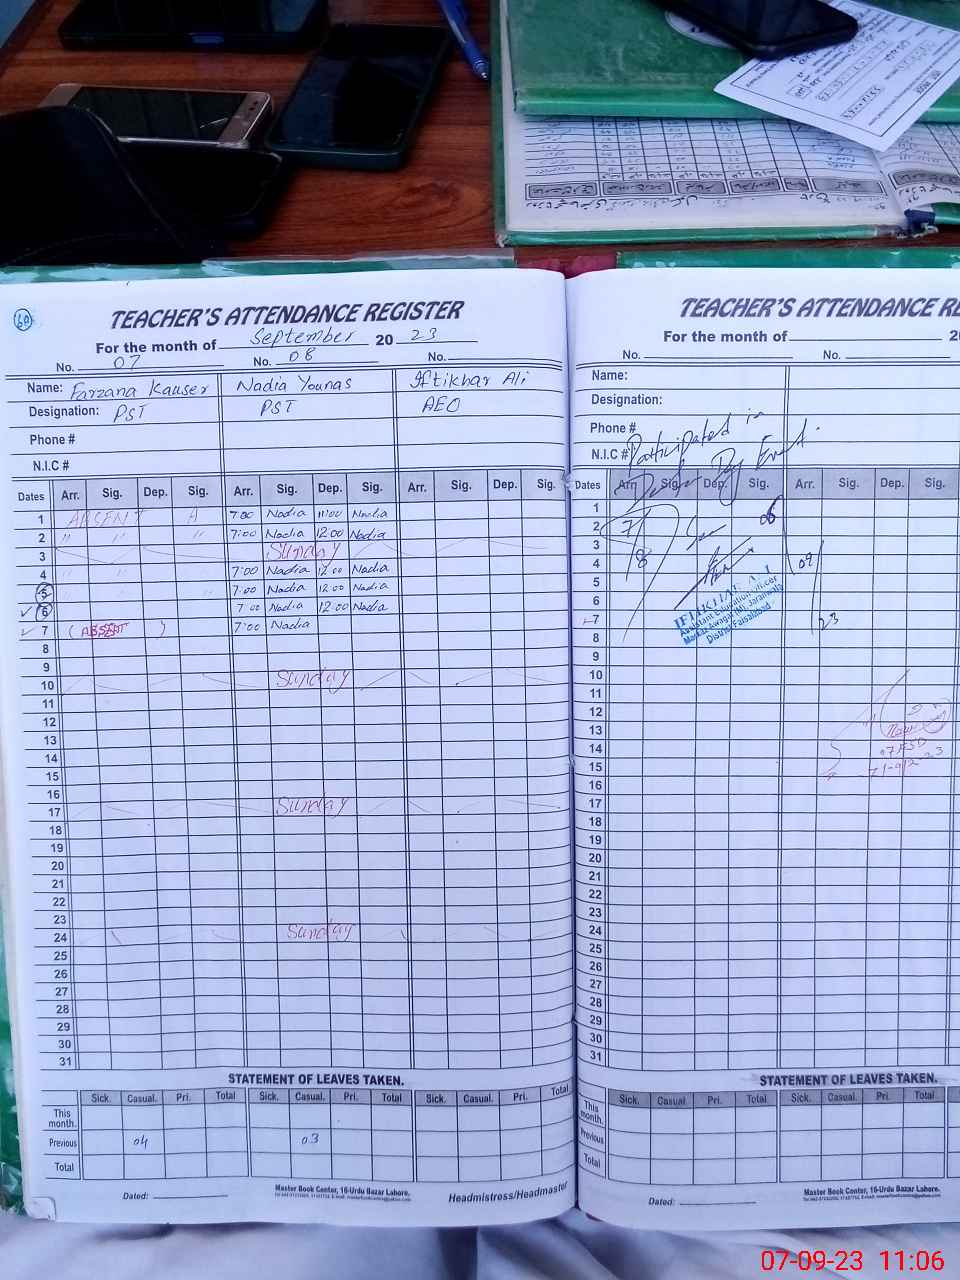 60
TEACHER'S ATTENDANCE REGISTER
For the month of September 2023
No. 07 No. 08 No.
Name: Farzana Kauser Nadia Younas Iftikhar Ali
Designation: PST PST AEO
Phone #
N.I.C #
Dates Arr. Sig. Dep. Sig. Arr. Sig. Dep. Sig. Arr. Sig. Dep. Sig.
1 ABSENT A 7:00 Nadia 11:00 Nadia
2 " " " 7:00 Nadia 12:00 Nadia
3 Sunday
4 " " " 7:00 Nadia 12:00 Nadia
5 7:00 Nadia 12:00 Nadia
6 7:00 Nadia 12:00 Nadia
7 (ABSENT) 7:00 Nadia
8
9
10 Sunday
11
12
13
14
15
16
17 Sunday
18
19
20
21
22
23
24 Sunday
25
26
27
28
29
30
31
STATEMENT OF LEAVES TAKEN.
Sick. Casual. Pri. Total Sick. Casual. Pri. Total Sick. Casual. Pri. Total
This month.
Previous 04 03
Total
Dated:
Master Book Center, 16-Urdu Bazar Lahore.
Headmistress/Headmaster
TEACHER'S ATTENDANCE RE
For the month of 20
No. No.
Name:
Designation:
Phone #
N.I.C #
Participated in
Day Event.
Dates Arr. Sig. Dep. Sig. Arr. Sig. Dep. Sig.
1
2
3
4
5
6
7
8
9
10
11
12
13
14
15
16
17
18
19
20
21
22
23
24
25
26
27
28
29
30
31
IFTIKHAR ALI
Assistant Education Officer
Markaz Awagat (M), Jaranwala
District Faisalabad
STATEMENT OF LEAVES TAKEN.
Sick. Casual Pri. Total Sick. Casual. Pri.
This month.
Previous
Total
Dated:
Master Book Center, 16-Urdu Bazar Lahore.
07-09-23 11:06